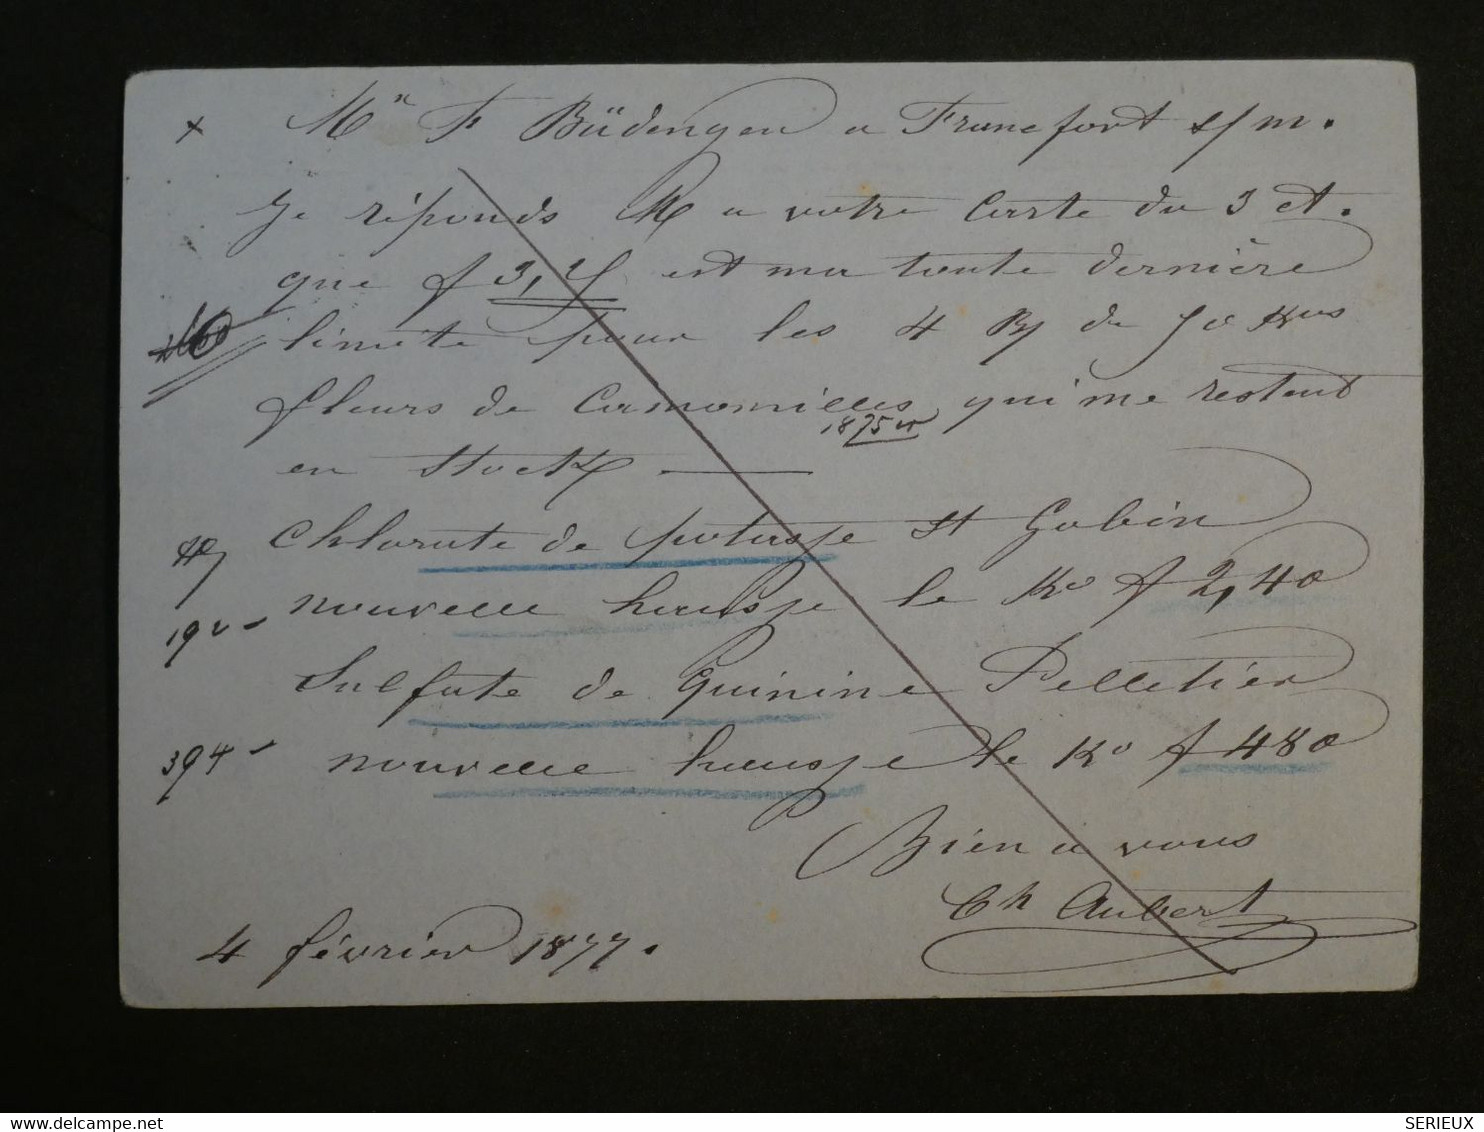 x Mr F Büdengen a Francfort s/m.
Je réponds a votre Carte du 3 ct.
que f 3, est ma toute dernière
limite pour les 4 B/ de 50 Kos
fleurs de Camomilles qui me restent
1875r
en stock —
Chlorate de potasse St Gobin
nouvelle hausse le Ko f 2,40
192-
Sulfate de Quinine Pelletier
394- nouvelle hausse le Ko f 480
Bien a vous
Ch Aubert
4 février 1877.
SERIEUX
delcampe.net